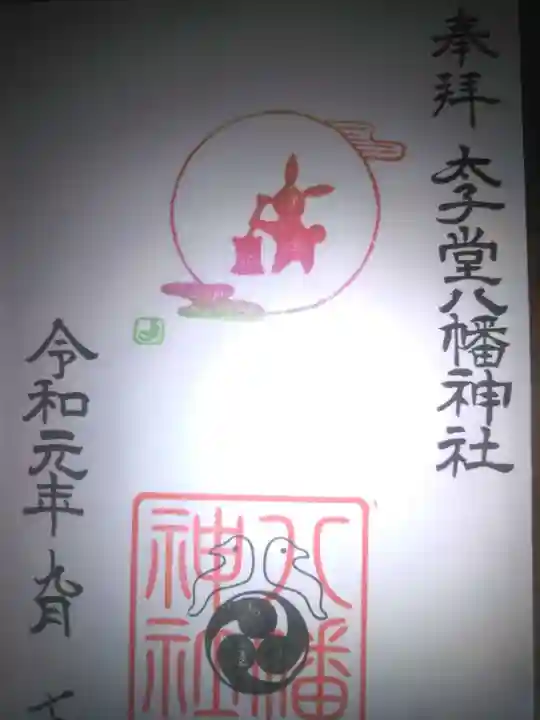 奉拝 太子堂八幡神社
八幡
神社
令和元年 九月